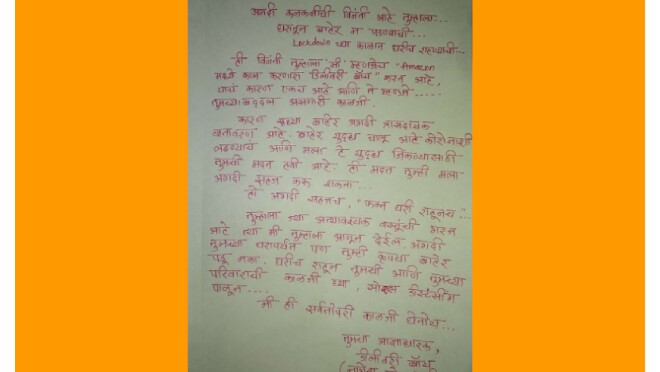 अगदी कळकळीची विनंती आहे तुम्हाला...
घरातून बाहेर न पडण्याची...
Lockdown च्या काळात घरीच राहण्याची...
ही विनंती तुम्हाला "मी" म्हणजेच "Amazon
मध्ये काम करणारा डिलीवरी बॉय" करत आहे,
याचं कारण एकच आहे आणि ते म्हणजे.....
तुमच्याबद्दल असणारी काळजी.
कारण सध्या बाहेर अगदी त्रासदायक
वातावरण आहे. बाहेर युद्ध चालू आहे कोरोनाशी
लढण्याचं आणि मला हे युद्ध जिंकण्यासाठी
तुमची मदत हवी आहे. ही मदत तुम्ही मला
अगदी सहज करू शकता...
ती अगदी सहजच, "फक्त घरी राहूनच..."
तुम्हाला ज्या अत्यावश्यक वस्तूंची गरज
आहे त्या मी तुम्हाला आणून देईल. अगदी
तुमच्या घरापर्यंत पण तुम्ही कृपया बाहेर
पडू नका. घरीच राहून तुमची आणि तुमच्या
परिवाराची काळजी घ्या, सोशल डिस्टेंसींग
पाळून....
मी ही सर्वतोपरी काळजी घेतोच...
तुमचा आज्ञाधारक,
डीलीवरी बॉय